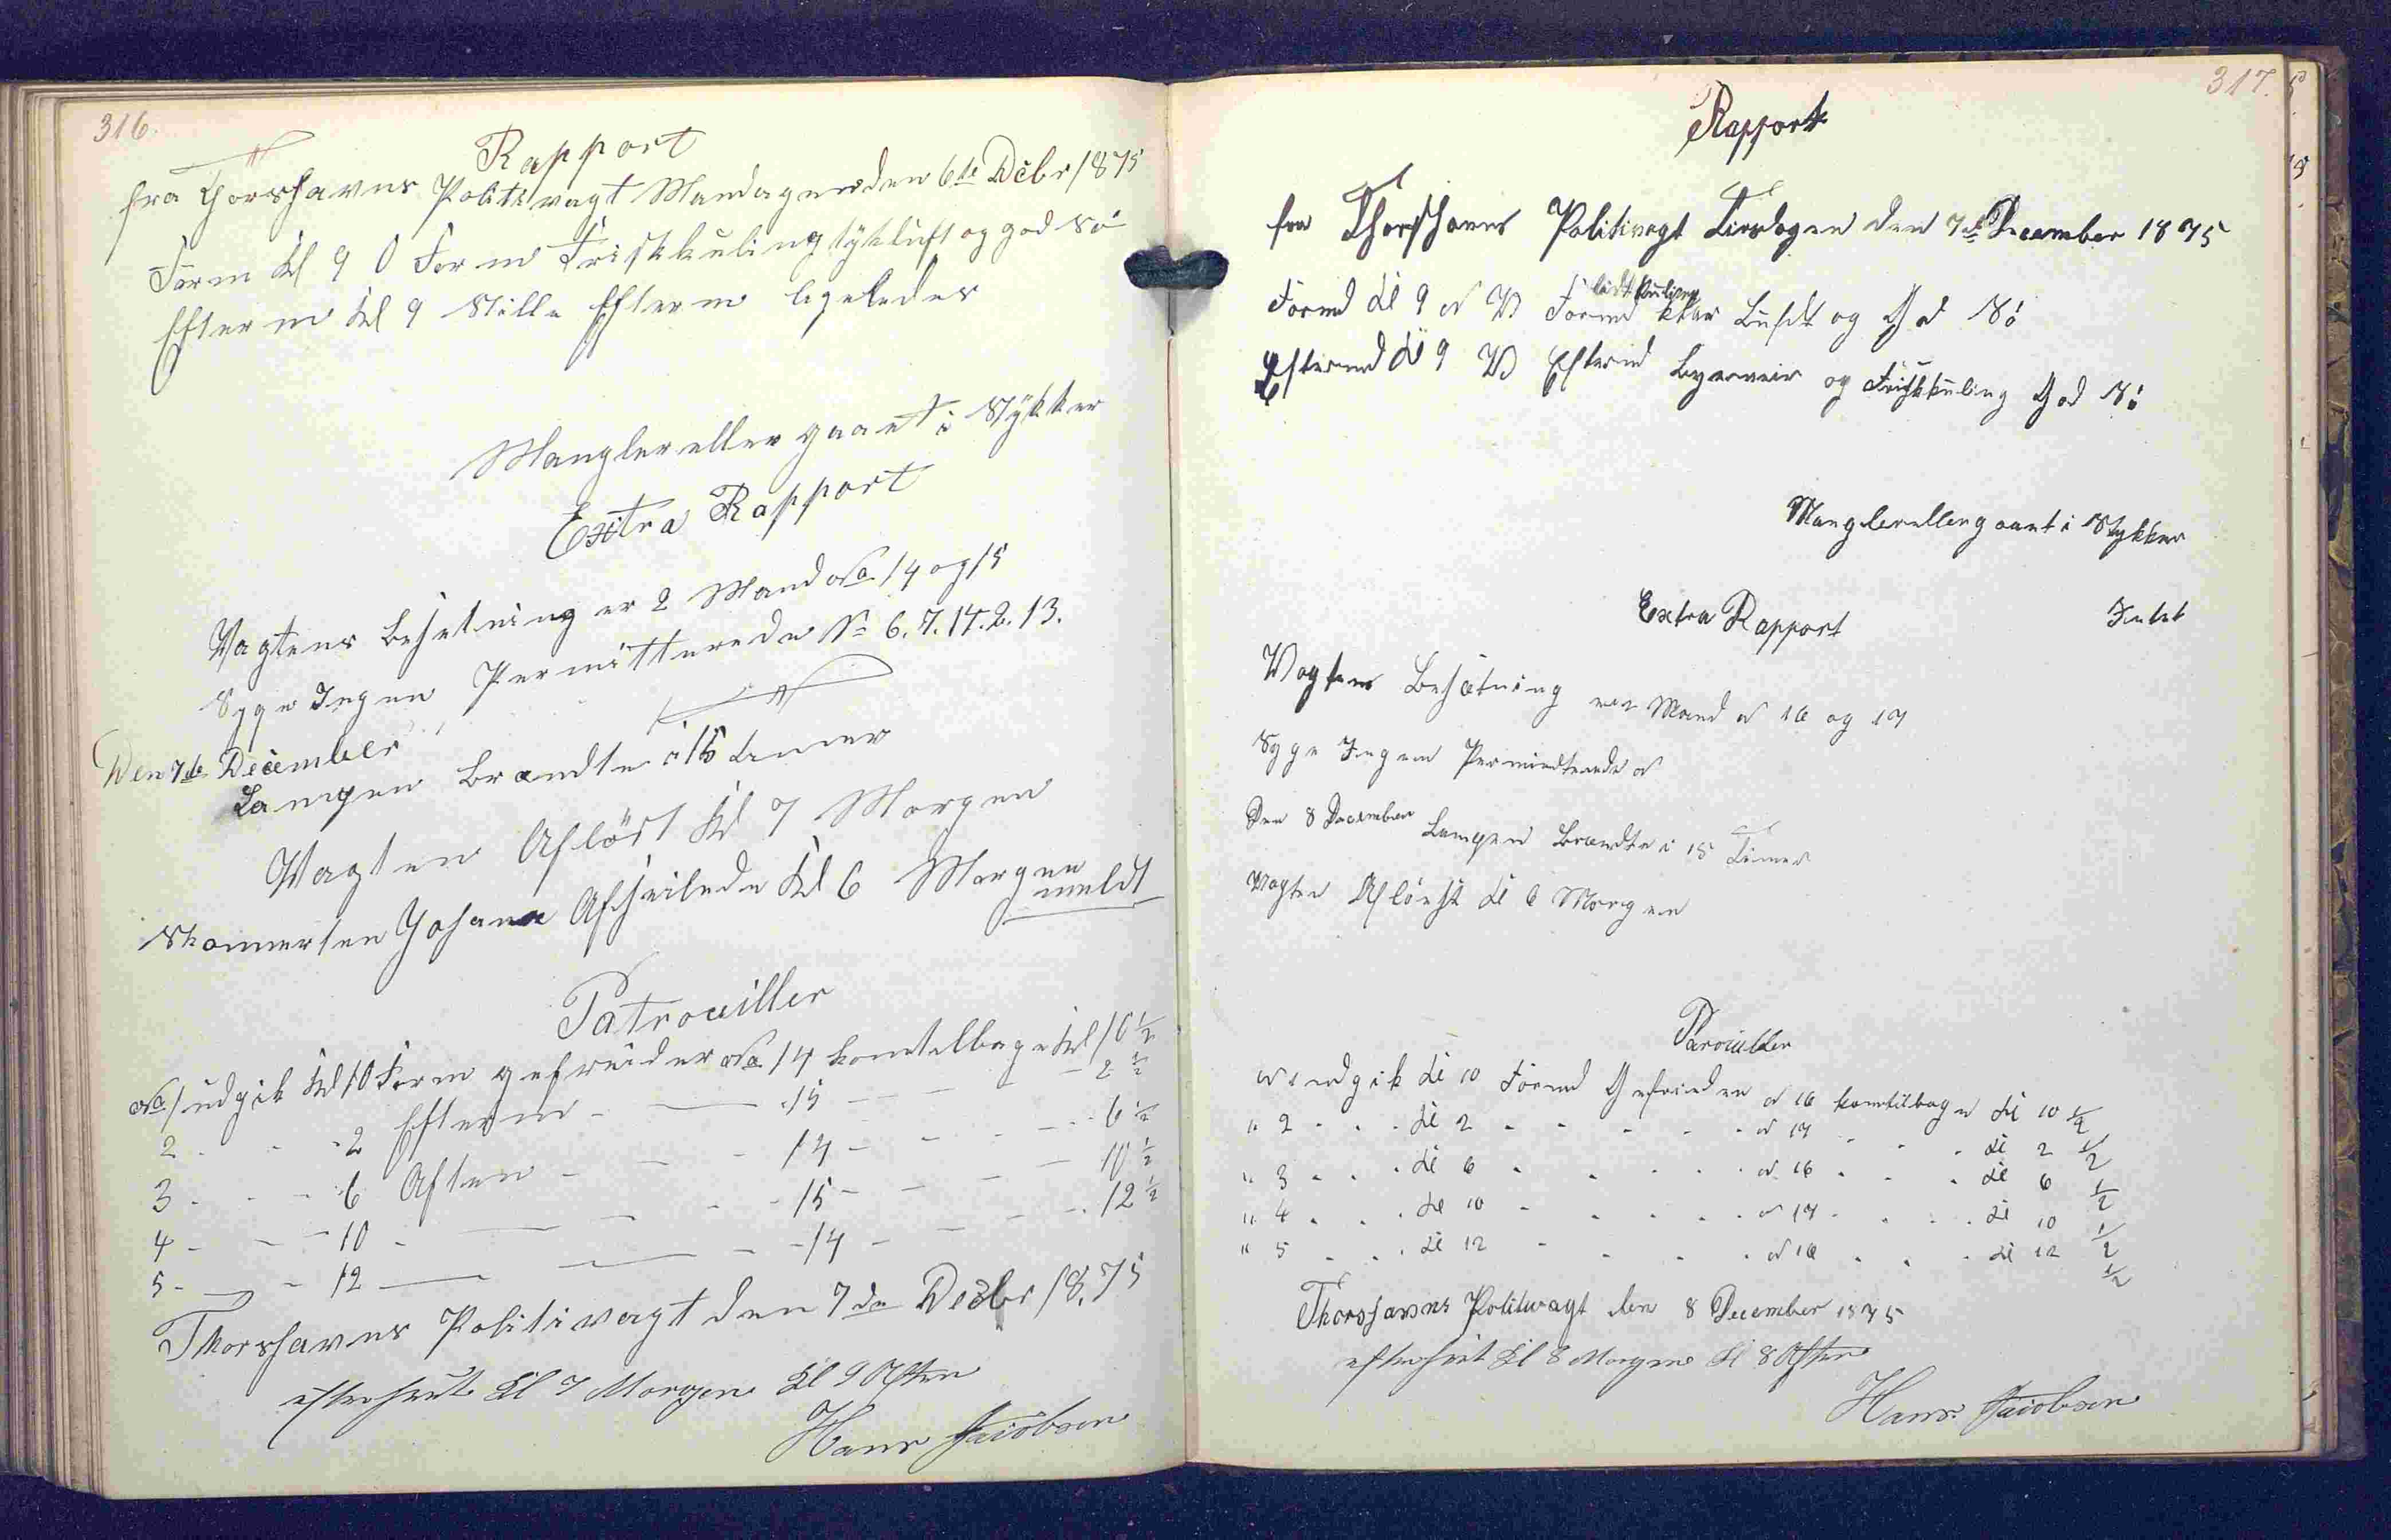 316.
Rapport
fra Thorshavns Politivagt Mandagen den 6te Decbr 1875
Form Kl 9 O Form Friskkuling tykluft og god Sö
Efterm Kl 9 Stille Efterm ligeledes
Mangler eller gaaet i Stykker
Extra Rapport
Vagtens Besetning er 2 Mand No 14 og 15
Syge Ingen Permitterede No 6. 7. 17. 2. 13.
Den 7de December
Lampen Brandte i 15 timer
Vagten Aflöst Kl 7 Morgen
Skonnerten Johanne Afseilede Kl 6 Morgen
meldt
Patrouiller
No 1 udgik Kl 10 Form gefreider No 14 kom tilbage Kl 10 1/2
2 - - - 2 Efterm - - 15 - - - 2 1/2
3 - - - 6 Aften - - - 14 - - - - 6 1/2
4 - - - 10 - - - - 15 - - - 10 1/2
5 - - - 12 - - - - 14 - - - - 12 1/2
Thorshavns Politivagt den 7de Decbr 1875
efterseet Kl 7 Morgen Kl 9 Aften
Hans Jacobsen
317.
Rapport
fra Thorshavns Politivagt Tirsdagen den 7de December 1875
lidt kuling
Formd Kl 9 V Formd klar Luft og God Sö
Eftermd Kl 9 V Eftermd Byeveir og Friskkuling God Sö
Mangler eller gaaet i Stykker
Extra Rapport Intet
Vagtens Besætning er 2 Mand No 16 og 17
Syge Ingen Permidterede No
Den 8 December Lampen Brændte i 15 Timer
Vagten Aflöest Kl 6 Morgen
Parouiller
No 1 udgik Kl 10 Formd Gefreideren No 16 kom tilbage Kl 10 1/2
" 2 - - - Kl 2 - - - - No 17 - - - Kl 2 1/2
" 3 - - - Kl 6 - - - - No 16 - - - Kl 6 1/2
" 4 - - - Kl 10 - - - - No 17 - - - Kl 10 1/2
" 5 - - - Kl 12 - - - - No 16 - - - Kl 12 1/2
Thorshavns Politivagt den 8 December 1875
efterseet Kl 8 Morgen Kl 8 Aften
Hans Jacobsen